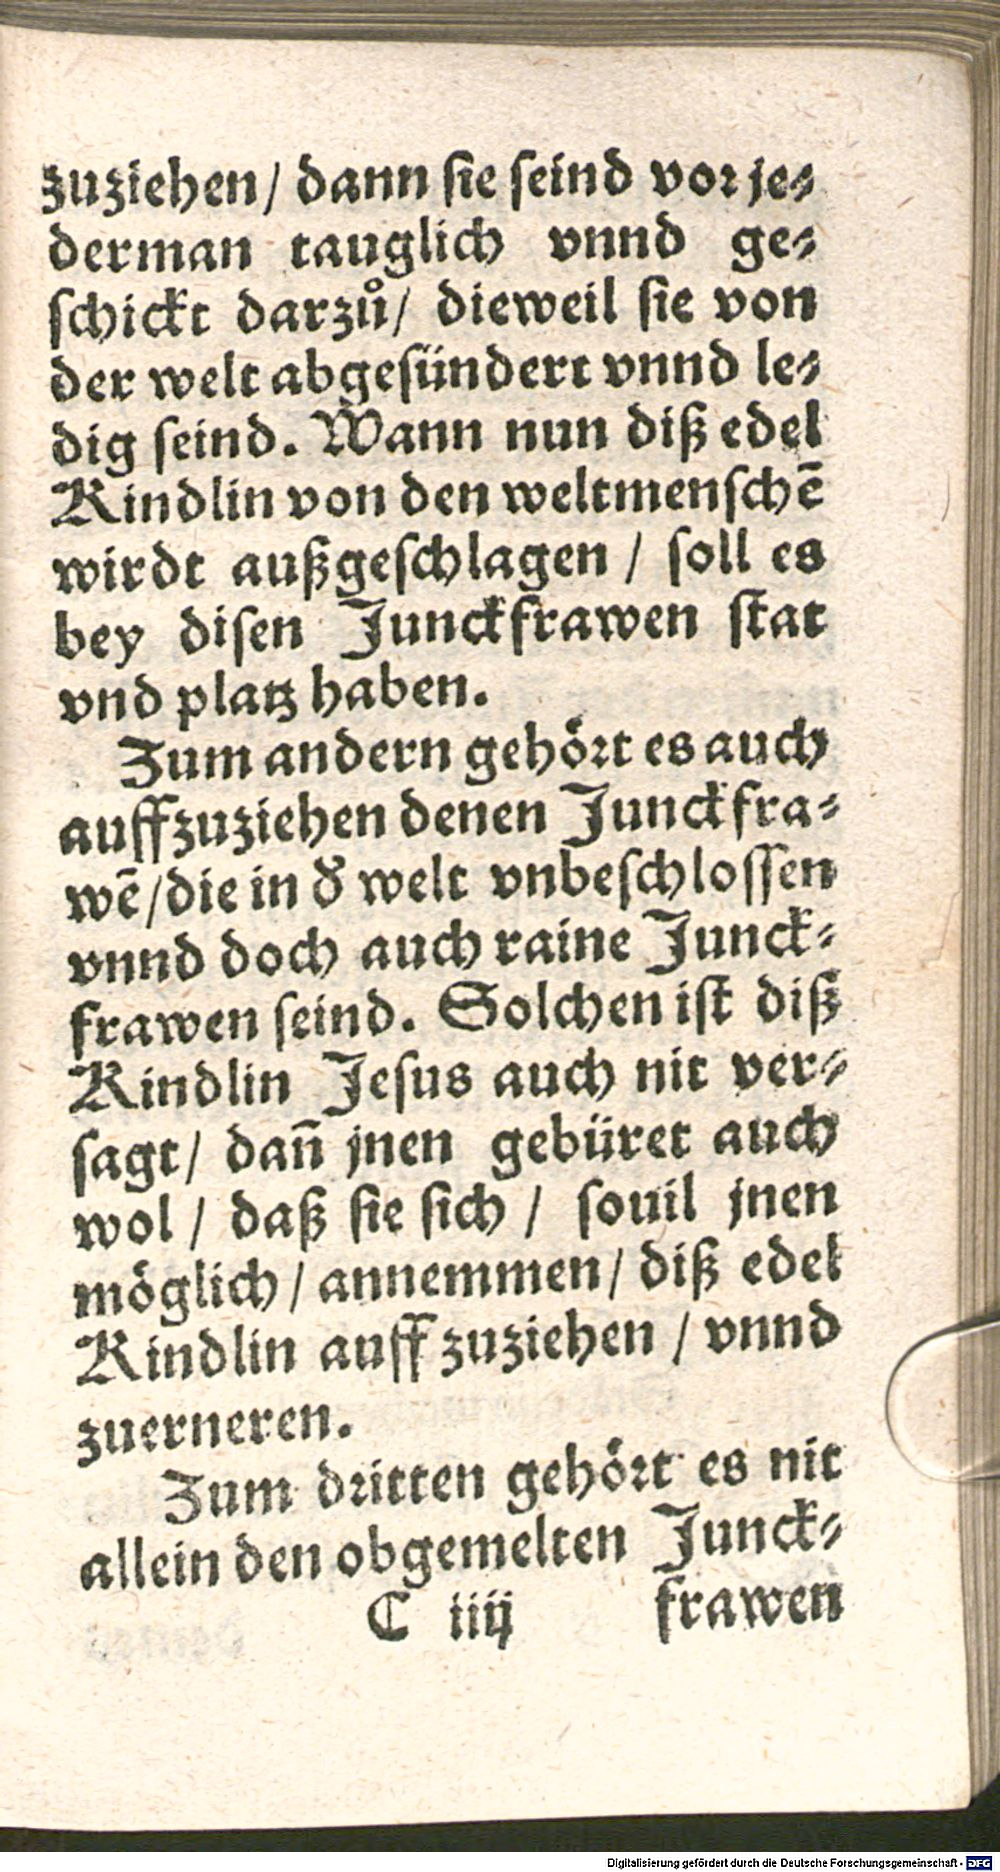 zuziehen / dann sie seind vor je⸗
derman tauglich vnnd ge⸗
schickt darzů / dieweil sie von
der welt abgesündert vnnd le⸗
dig seind. Wann nun diß edel
Kindlin von den weltmenschē
wirdt außgeschlagen / soll es
bey disen Junckfrawen stat
vnd platz haben.
Zum andern gehört es auch
auffzuziehen denen Junckfra⸗
wē / die in d' welt vnbeschlossen
vnnd doch auch raine Junck⸗
frawen seind. Solchen ist diß
Kindlin Jesus auch nit ver⸗
sagt / dañ jnen gebüret auch
wol / daß sie sich / souil jnen
möglich / annemmen / diß edel
Kindlin auffzuziehen / vnnd
zuerneren.
Zum dritten gehört es nit
allein den obgemelten Junck⸗
C iiij frawen
Digitalisierung gefördert durch die Deutsche Forschungsgemeinschaft - DFG